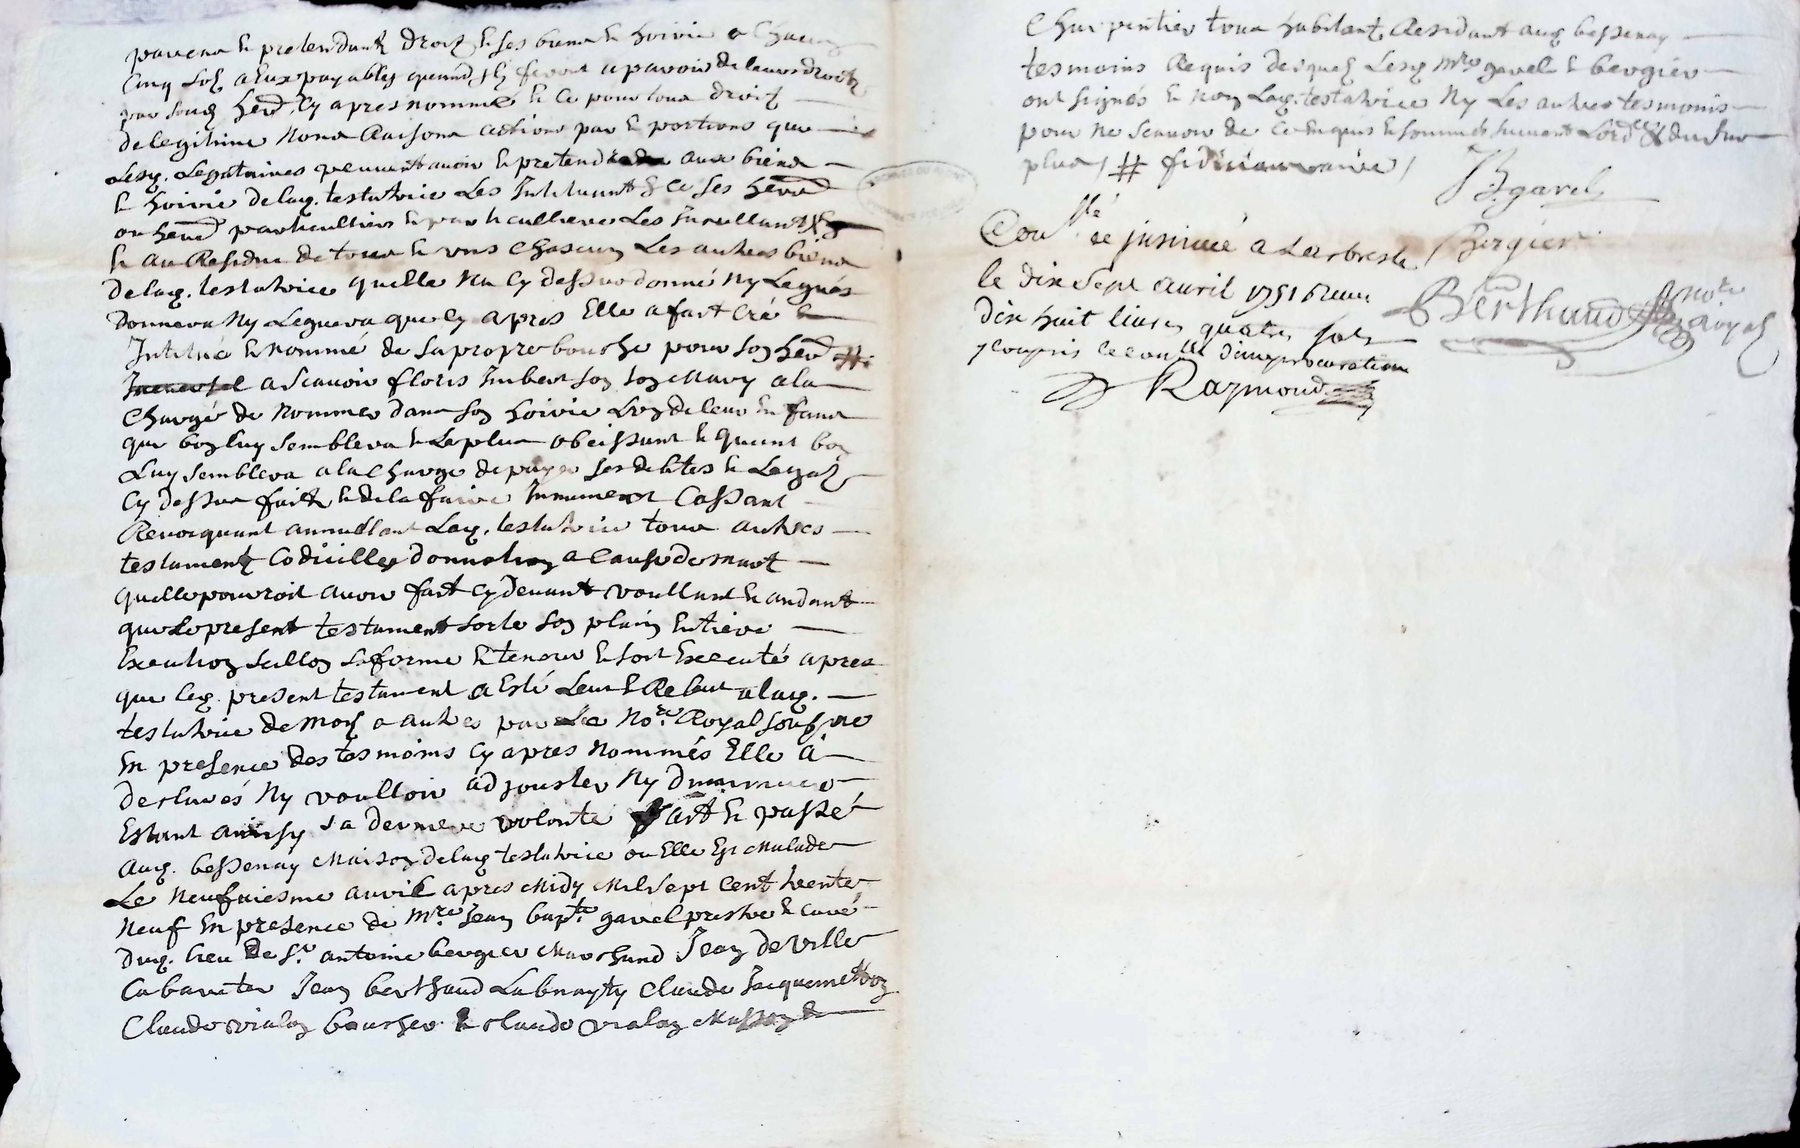 parens & pretendants droit & ses biens & hoirie a chacun
Cinq sols a eux payables quand ils feront apavoir de leurs droits
par sond. herd. cy apres nommé & ce pour tous droits
de legitime noms Raisons actions par & portions que
lesd. Legataires peuvent avoir & pretendre aux biens
& hoirie de lad. testatrice Les Instituant & ce ses herd.
ou herd. particulliers & particullieres Les
& au Residue de tous & uns chascun Les autres biens
de lad. testatrice quelle Na Cy dessus donné Ny Legués
donnera Ny Leguera que cy apres Elle a fait créé
Institué & nommé de sa propre bouche pour son herd. #
a Scavoir floris Imbert son mary a la
Charge de Nommer dans son hoirie L'un de leur Enfans
que bon luy semblera & Le plus obeissant & quant bon
Luy semblera a la charge de payer ses debtes & Legats
Cy dessus faits & de la faire Inhumer Cassant
Revocquant annullant Lad. testatrice tous autres
testaments Codicilles donnation a cause de mort
quelle pourroit avoir fait cy devant voullant & andant
que le present testament sorte son plain Entiere
Execution sellon sa forme & teneur & soit Executé apres
que led. present testament a Esté Leut & Releut a lad.
testatrice de mot a autre par Le No.re Royal soubsné
En presence des tesmoins cy apres nommés Elle a
declarés Ny voulloir adjouster Ny diminuer
Estant ainsy sa derniere volonté fait & passé
aud. bessenay Maison de lad testatrice ou Elle Est Malade
Le Neufviesme avril apres Midy Mil sept cent trente
Neuf En presence de M.re Jean bapt.te gavel prestre & curé
dud. lieu de S.r antoine bergier Marchand Jean deville
Cabaretier Jean berthaud Claude Jacquemetton
Claude vialon boucher & claude vialon Masson &
Charpentier tous habitants Residant aud. bessenay
tesmoins Requis desquels Lesd. M.re gavel & bergier
ont signés & non Lad. testatrice Ny Les autres tesmoins
pour ne scavoir de ce Enquis & sommés suivant Lord.ce
plus / # fiduciaire /
J B gavel
Con.llé & insinué a Larbresle
Bergier
le dix sept avril 1751 Receu
Berthaud No.re Royal
dix huit livres quatre sols
y compris le con.lle d'une procuration
Raymond